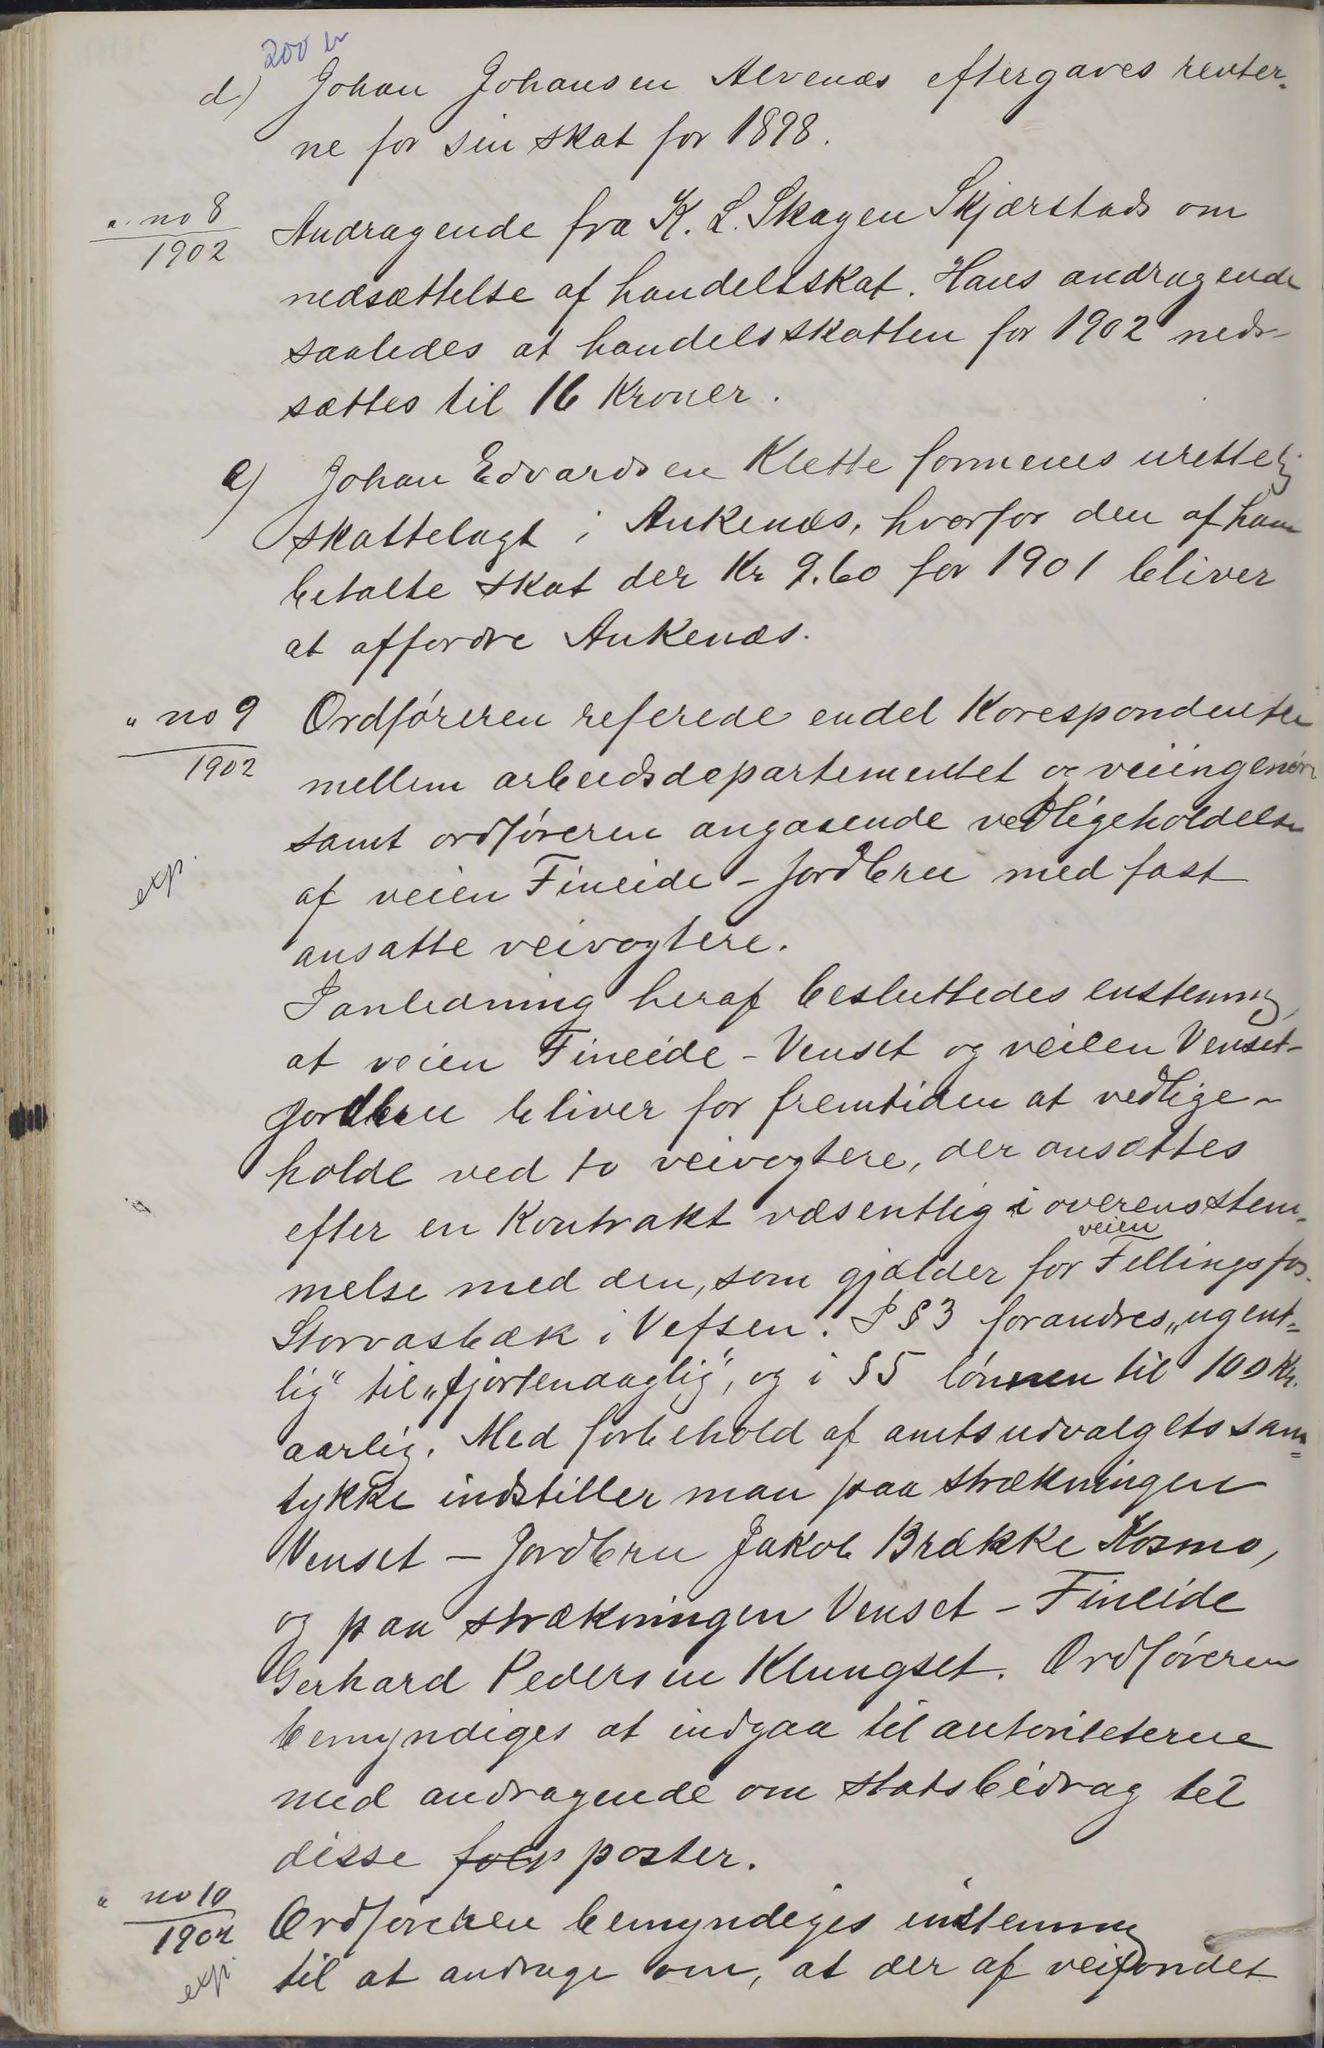 200 b
d) Johan Johansen Alvenæs eftergaves renter-
ne for sin skat for 1898.
" no 8
1902
Andragende fra K. L. Skagen Skjærstads om
nedsættelse af handelsskat. Hans andragende
saaledes at handelsskatten for 1902 ned-
sættes til 16 Kroner.
e) Johan Edvardsen Klette formenes urettelig
skattelagt i Ankenæs, hvorfor den af ham
betalte skat der Kr 9.60 for 1901 bliver
at affordre Ankenæs.
" no 9
1902
Ordføreren referede endel Korespondenter
mellem arbeidsdepartementet og veiingeniør
samt ordføreren angaaende vedligeholdelse
exp.
af veien Fineide - Jordbru med fast
ansatte veivogtere.
I anledning heraf besluttedes enstemmig,
at veien Fineide - Venset og veien Venset-
Jordbru bliver for fremtiden at vedlige-
holde ved to veivogtere, der ansættes
efter en Kontrakt væsentlig i overensstem-
veien
melse med den, som gjælder for Fellingsfos-
Storvasbæk i Vefsen. I § 3 forandres „ugent-
lig" til „fjortendaglig", og i § 5 lønnen til 100 Kr.
aarlig. Med forbehold af amtsudvalgets sam-
tykke indstiller man paa strækningen
Venset - Jordbru Jakob Brække Kosmo,
og paa strækningen Venset - Fineide
Gerhard Pedersen Klungset. Ordføreren
bemyndiges at indgaa til autoriteterne
med andragende om statsbidrag til
disse poster.
" no 10
1902
Ordføreren bemyndiges enstemmig
exp
til at andrage om, at der af veifondet